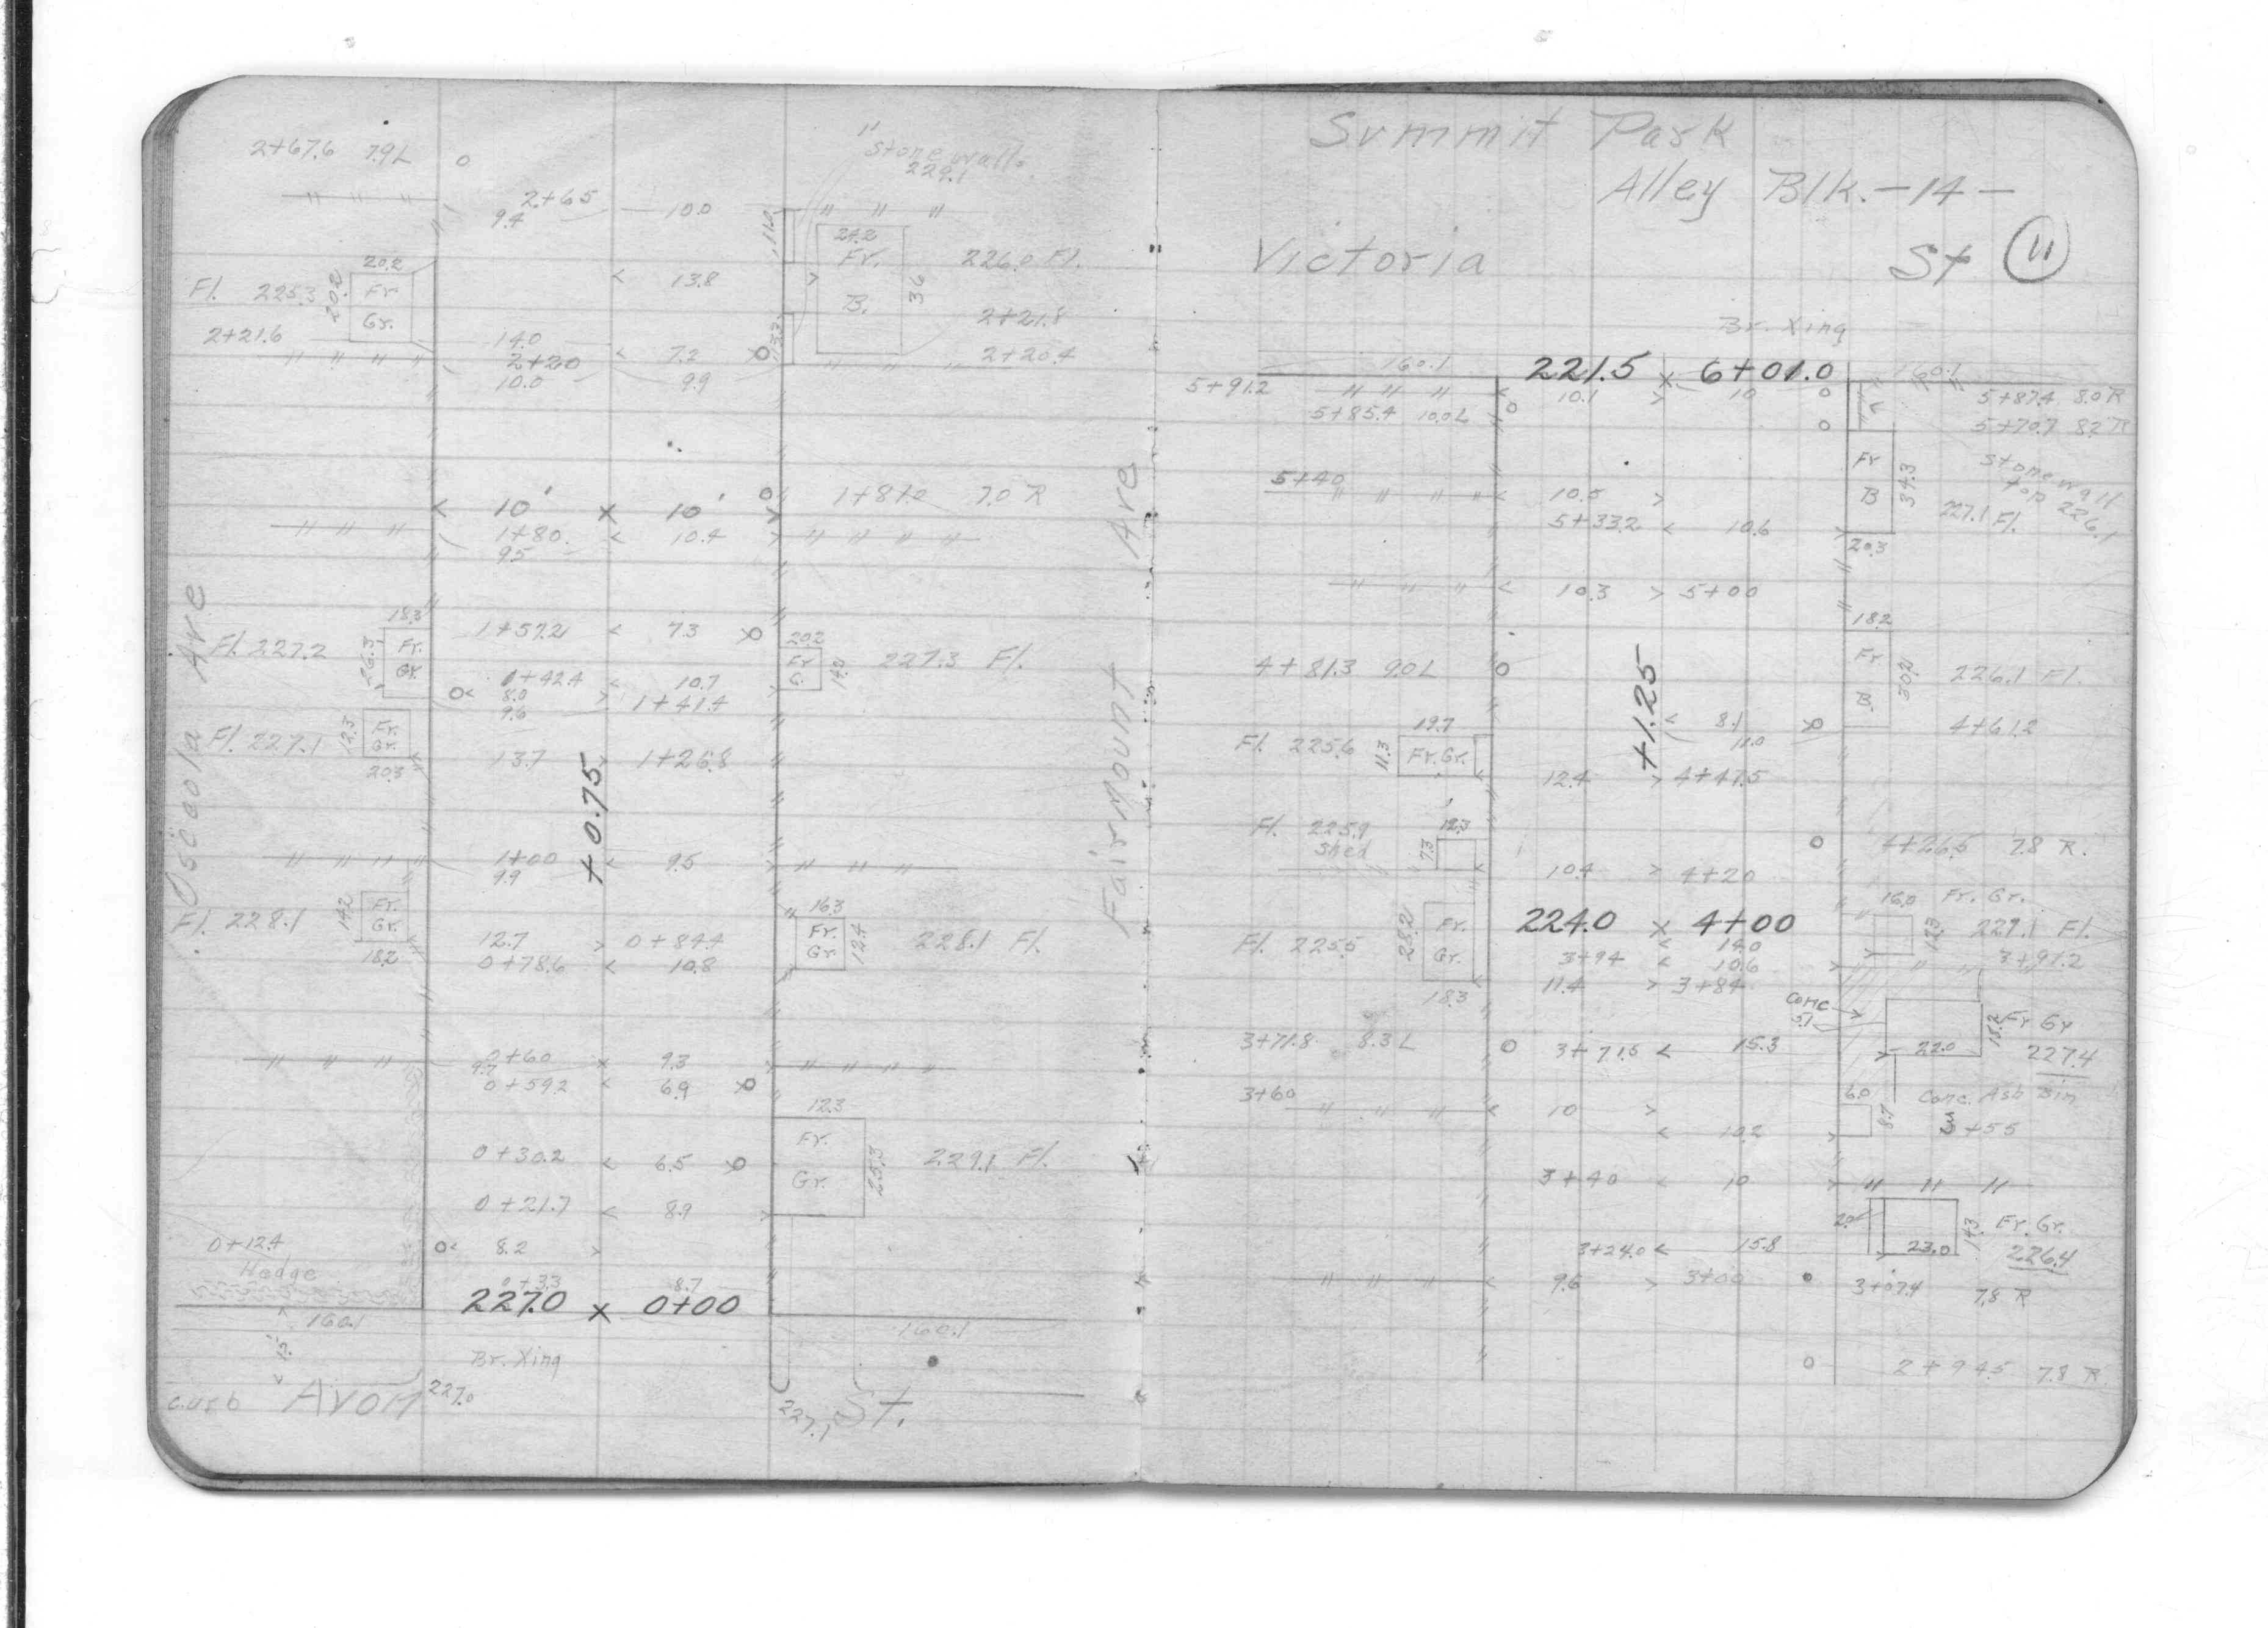 2+67.6 7.9L
" stone walls
229.1
" " "
2+65
9.4
10.0
11.0
" " "
24.2
Fr.
B.
36
226.0 Fl.
13.8
Fl. 225.3
20.2
20.2
Fr
Gr.
2+21.8
2+21.6
14.0
2+20
7.2
13.3
2+20.4
10.0
9.9
10' x 10'
1+81.0 7.0 R
1+80.
10.4
9.5
Osceola Ave
18.3
Fl. 227.2
26.3
Fr.
Gr.
1+57.2
7.3
20.2
Fr
G.
14.2
227.3 Fl.
1+42.4
10.7
8.0
1+41.4
9.6
Fl. 227.1
12.3
Fr.
Gr.
20.3
13.7
1+26.8
+0.75
1+00
9.5
9.9
Fl. 228.1
14.2
Fr.
Gr.
18.2
16.3
Fr.
Gr.
12.4
228.1 Fl.
12.7
0+84.4
0+78.6
10.8
0+60
9.3
9.7
0+59.2
6.9
12.3
Fr.
Gr.
25.3
229.1 Fl.
0+30.2
6.5
0+21.7
8.9
0+12.4
8.2
Hedge
0+3.3
8.7
227.0 x 0+00
160.1
160.1
15.
Br. Xing
curb Avon
227.0
227.1
St.
Fairmount Ave
Summit Park
Alley Blk. -14-
Victoria St 11
Br. Xing
160.1
221.5 x 6+01.0
160.1
5+91.2
10.1
10
5+87.4 8.0 R
5+85.4 10.0L
5+70.7 8.2 R
5+40
10.5
Fr
B
34.3
Stone wall
top 226.1
227.1 Fl.
5+33.2
10.6
20.3
10.3
5+00
18.2
Fr
B.
30.2
226.1 Fl.
4+81.3 9.0L
+1.25
8.1
4+61.2
11.0
Fl. 225.6
19.7
11.3
Fr. Gr.
12.4
4+47.5
Fl. 225.9
Shed
12.3
7.3
4+26.5 7.8 R.
10.4
4+20
16.0 Fr. Gr.
12.3
229.1 Fl.
224.0 x 4+00
14.0
Fl. 225.5
28.2
Fr.
Gr.
18.3
3+94
10.6
3+91.2
11.4
3+84
Conc
5.7
22.0
15.2
Fr Gr
227.4
3+71.8 8.3 L
3+71.5
15.3
3+60
10
10.2
6.0
8.7
Conc. Ash Bin
3+55
3+40
10
2.0
23.0
14.3
Fr. Gr.
226.4
3+24.0
15.8
9.6
3+00
3+07.4 7.8 R
2+94.5 7.8 R.